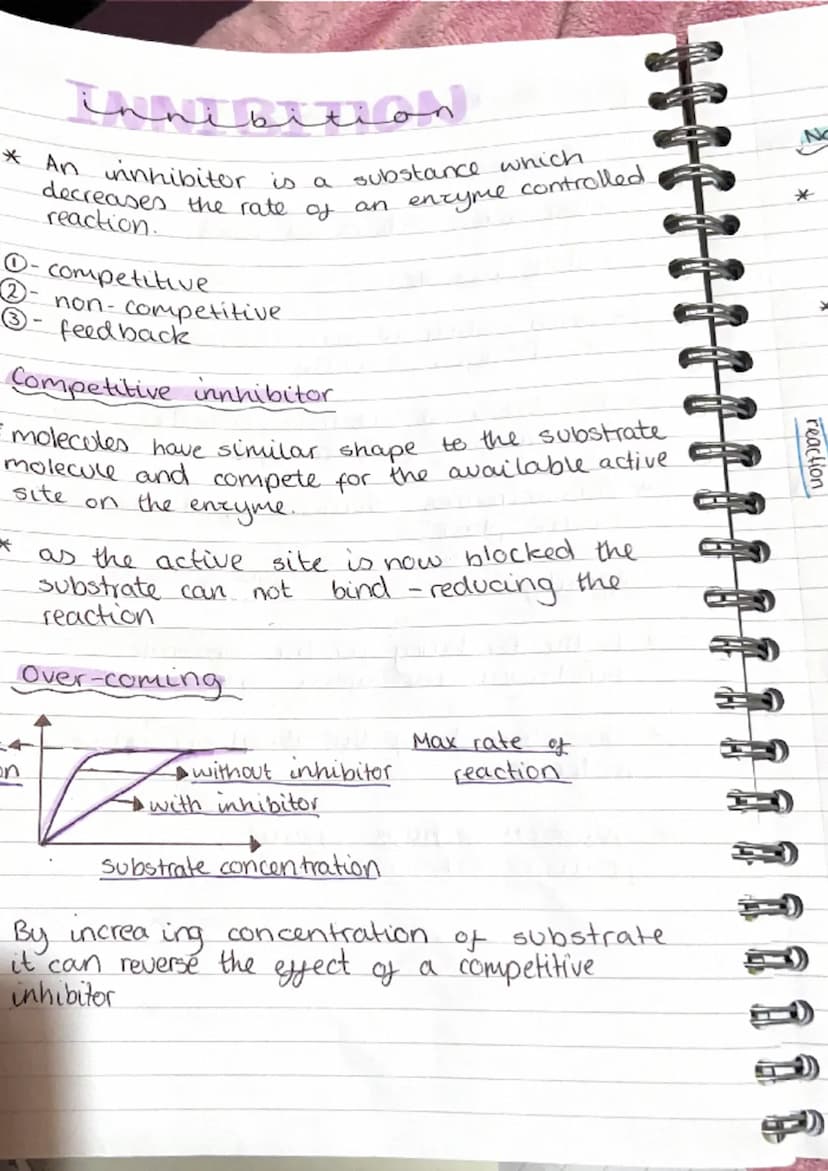 INNIBITION
innibition
* An innhibitor is a substance which
decreases the rate of an enzyme controlled
reaction.
① - competitive
② - non-competitive
③ - feedback
Competitive innhibitor
molecules have similar shape to the substrate
molecule and compete for the available active
site on the enzyme.
* as the active site is now blocked the
substrate can not bind - reducing the
reaction
Over-coming
Max rate of
reaction
without inhibitor
with inhibitor
on
substrate concentration
By increa ing concentration of substrate
it can reverse the effect of a competitive
inhibitor
*
*
reaction